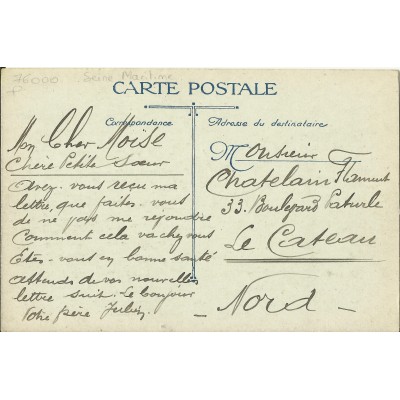 76000 Seine Maritime
CARTE POSTALE
Correspondance
Adresse du destinataire
Mon Cher Moise
Chère Petite Sœur
Avez-vous reçu ma
lettre, que faites-vous
de ne pas me rejoindre
Comment cela va chez vous
Êtes-vous en bonne santé
attends de vos nouvelles
lettre suit. Le bonjour
Votre frère
Monsieur
Chatelain Flament
33. Boulevard Paturle
Le Cateau
- Nord -